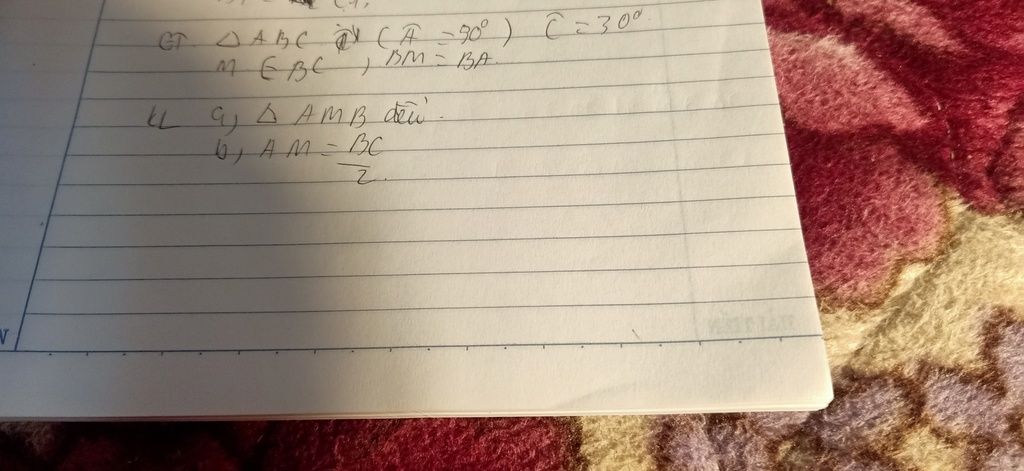 GT Δ ABC (Â = 90°) Ĉ = 30°.
M ∈ BC, BM = BA.
KL a, Δ AMB đều.
b, AM = BC/2.